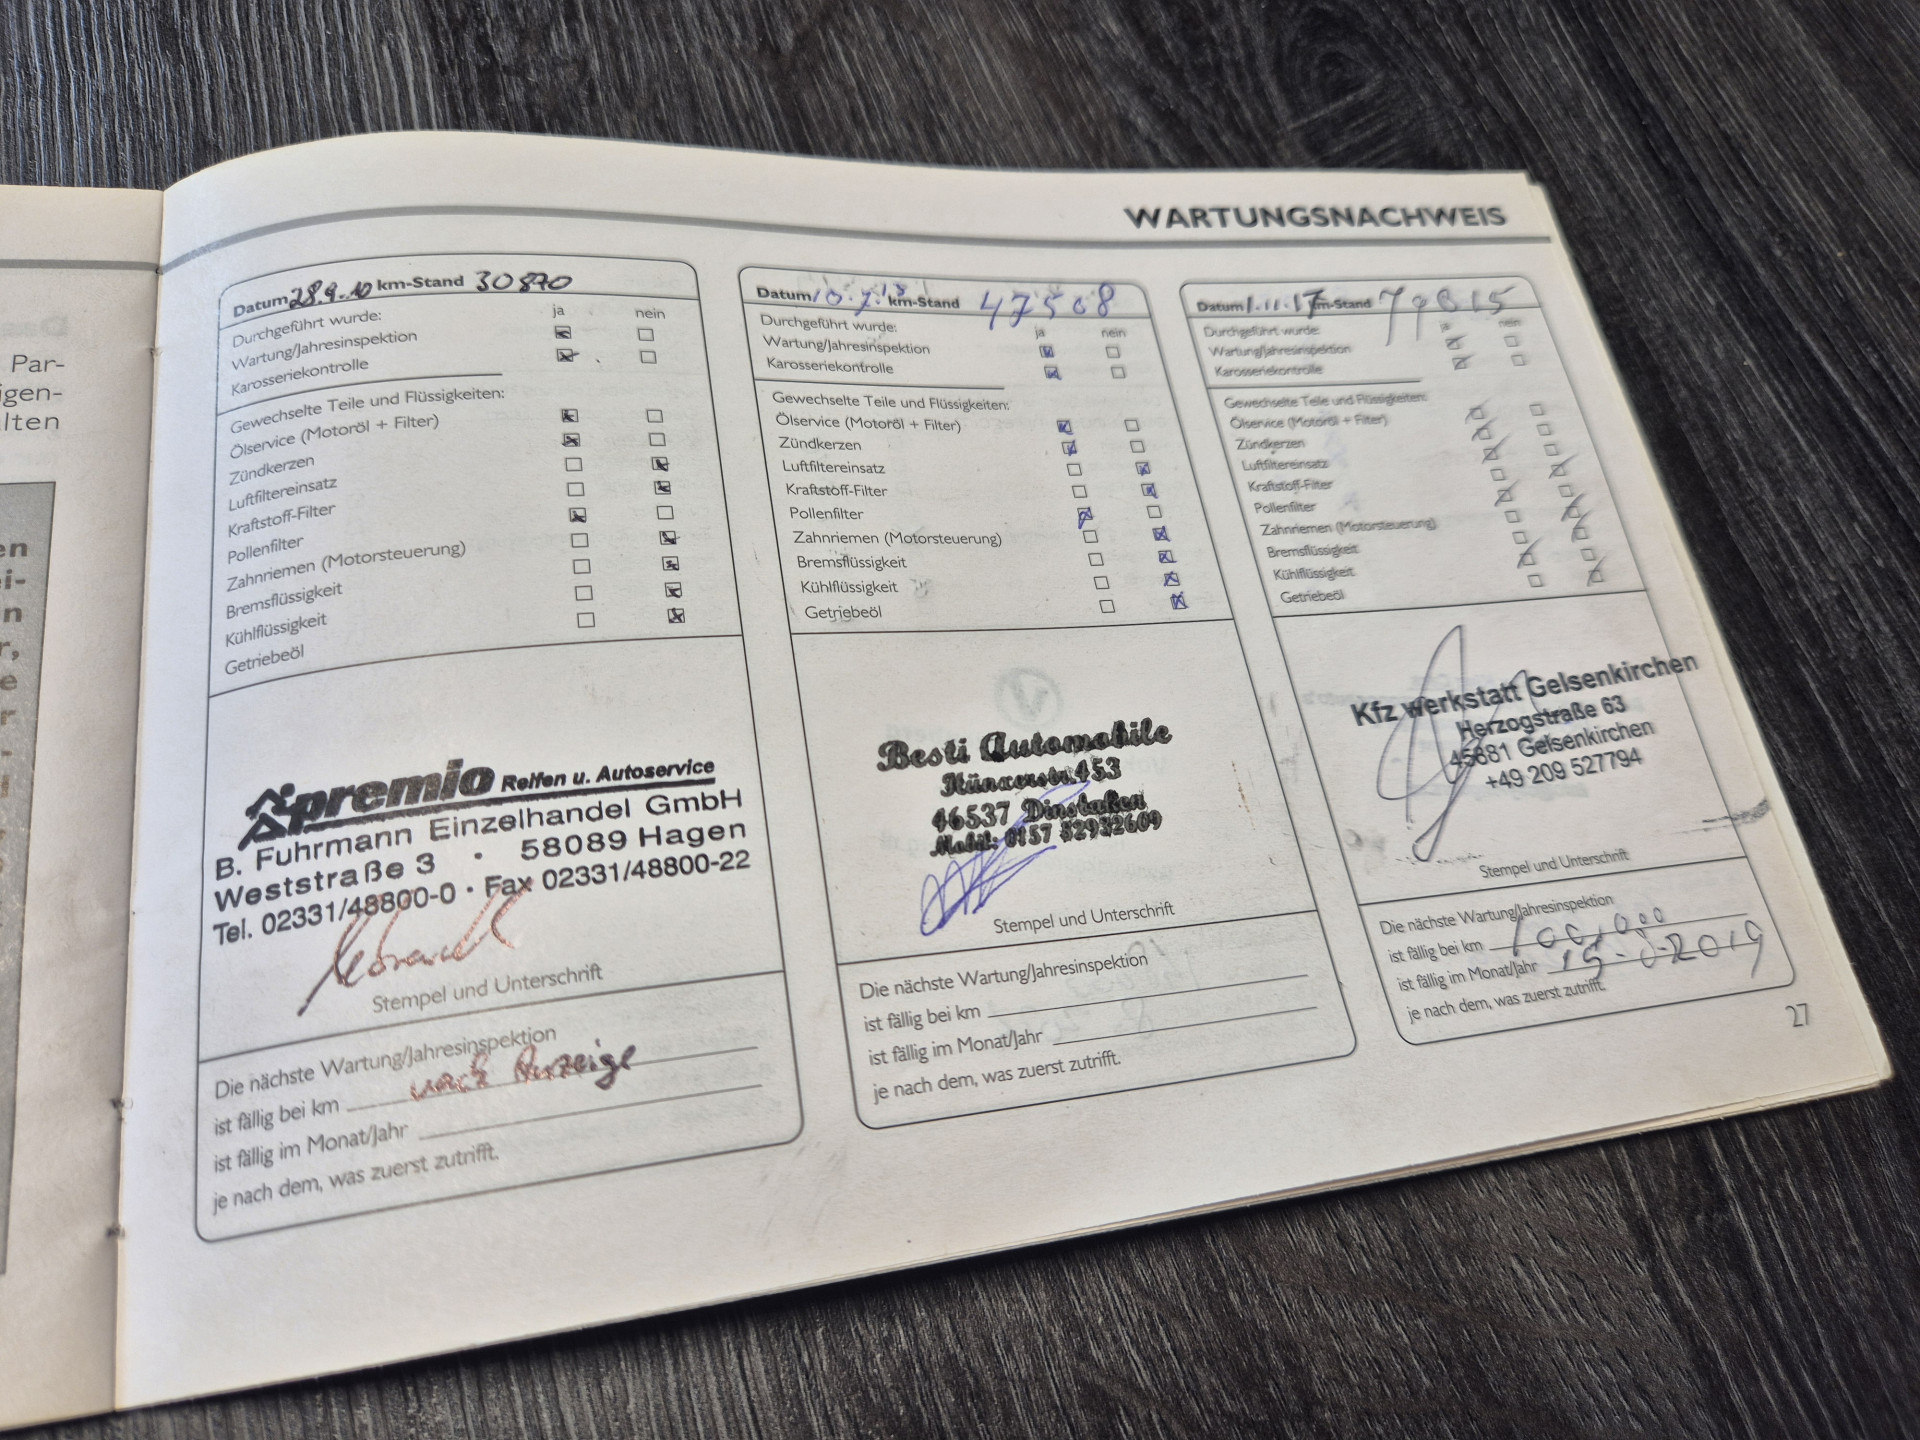 Par-
igen-
lten
en
ei-
n
r,
e
r
WARTUNGSNACHWEIS
Datum 28.9.10 km-Stand 30870
Durchgeführt wurde: ja nein
Wartung/Jahresinspektion
Karosseriekontrolle
Gewechselte Teile und Flüssigkeiten:
Ölservice (Motoröl + Filter)
Zündkerzen
Luftfiltereinsatz
Kraftstoff-Filter
Pollenfilter
Zahnriemen (Motorsteuerung)
Bremsflüssigkeit
Kühlflüssigkeit
Getriebeöl
premio Reifen u. Autoservice
B. Fuhrmann Einzelhandel GmbH
Weststraße 3 · 58089 Hagen
Tel. 02331/48800-0 · Fax 02331/48800-22
Stempel und Unterschrift
Die nächste Wartung/Jahresinspektion
ist fällig bei km nach Anzeige
ist fällig im Monat/Jahr
je nach dem, was zuerst zutrifft.
Datum 10.7.13 km-Stand 47508
Durchgeführt wurde: ja nein
Wartung/Jahresinspektion
Karosseriekontrolle
Gewechselte Teile und Flüssigkeiten:
Ölservice (Motoröl + Filter)
Zündkerzen
Luftfiltereinsatz
Kraftstoff-Filter
Pollenfilter
Zahnriemen (Motorsteuerung)
Bremsflüssigkeit
Kühlflüssigkeit
Getriebeöl
Besti Automobile
453
46537 Dinslaken
Mobil: 0157 32932609
Stempel und Unterschrift
Die nächste Wartung/Jahresinspektion
ist fällig bei km
ist fällig im Monat/Jahr
je nach dem, was zuerst zutrifft.
Datum 1.11.17 km-Stand 79815
Durchgeführt wurde: ja nein
Wartung/Jahresinspektion
Karosseriekontrolle
Gewechselte Teile und Flüssigkeiten:
Ölservice (Motoröl + Filter)
Zündkerzen
Luftfiltereinsatz
Kraftstoff-Filter
Pollenfilter
Zahnriemen (Motorsteuerung)
Bremsflüssigkeit
Kühlflüssigkeit
Getriebeöl
Kfz Werkstatt Gelsenkirchen
Herzogstraße 63
45881 Gelsenkirchen
+49 209 527794
Stempel und Unterschrift
Die nächste Wartung/Jahresinspektion
ist fällig bei km 100.000
ist fällig im Monat/Jahr
je nach dem, was zuerst zutrifft.
27